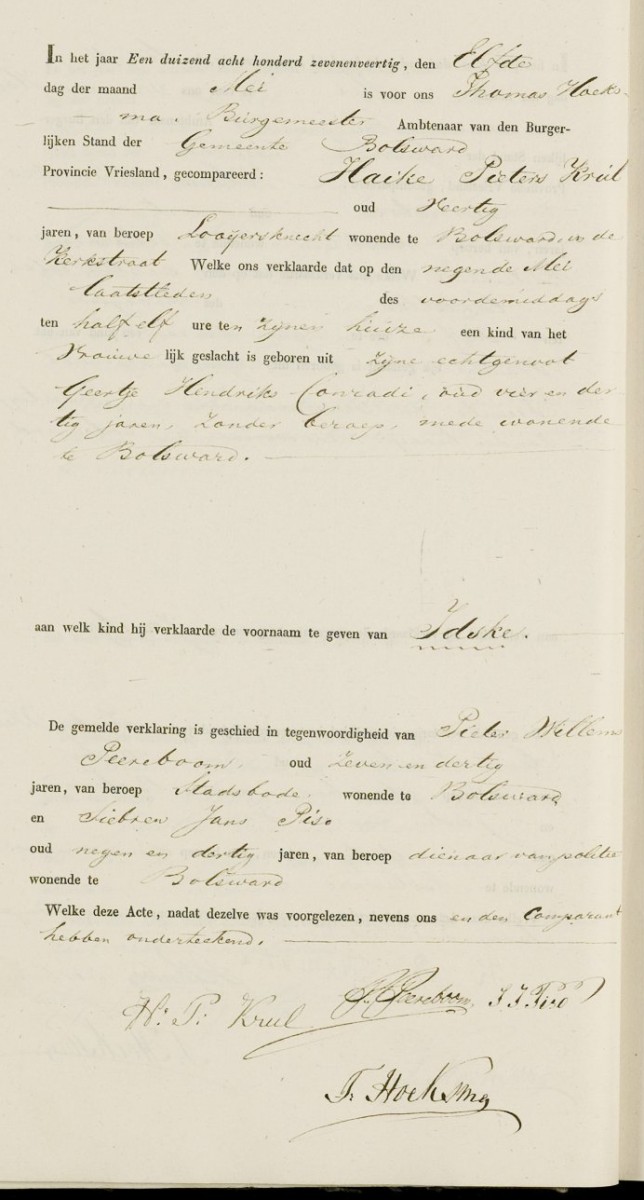 In het jaar Een duizend acht honderd zevenenveertig, den Elfde
dag der maand Mei is voor ons Thomas Hoeks-
ma. Burgemeester Ambtenaar van den Burger-
lijken Stand der Gemeente Bolsward
Provincie Vriesland, gecompareerd: Haike Pieters Krul
oud Veertig
jaren, van beroep Looijersknecht wonende te Bolsward in de
Kerkstraat Welke ons verklaarde dat op den negende Mei
laatstleden des voordemiddags
ten half elf ure ten zijnen huize een kind van het
Vrouwe lijk geslacht is geboren uit zijne echtgenoot
Geertje Hendriks Conradi, oud vier en der-
tig jaren, zonder beroep, mede wonende
te Bolsward.
aan welk kind hij verklaarde de voornaam te geven van Idske.
De gemelde verklaring is geschied in tegenwoordigheid van Pieter Willems
Peereboom, oud zeven en dertig
jaren, van beroep Stadsbode, wonende te Bolsward
en Siebren Jans Piso
oud negen en dertig jaren, van beroep dienaar van politie
wonende te Bolsward
Welke deze Acte, nadat dezelve was voorgelezen, nevens ons en den Comparant
hebben onderteekend.
H. P. Krul P. W. Peereboom. S J. Piso
T. Hoeksma